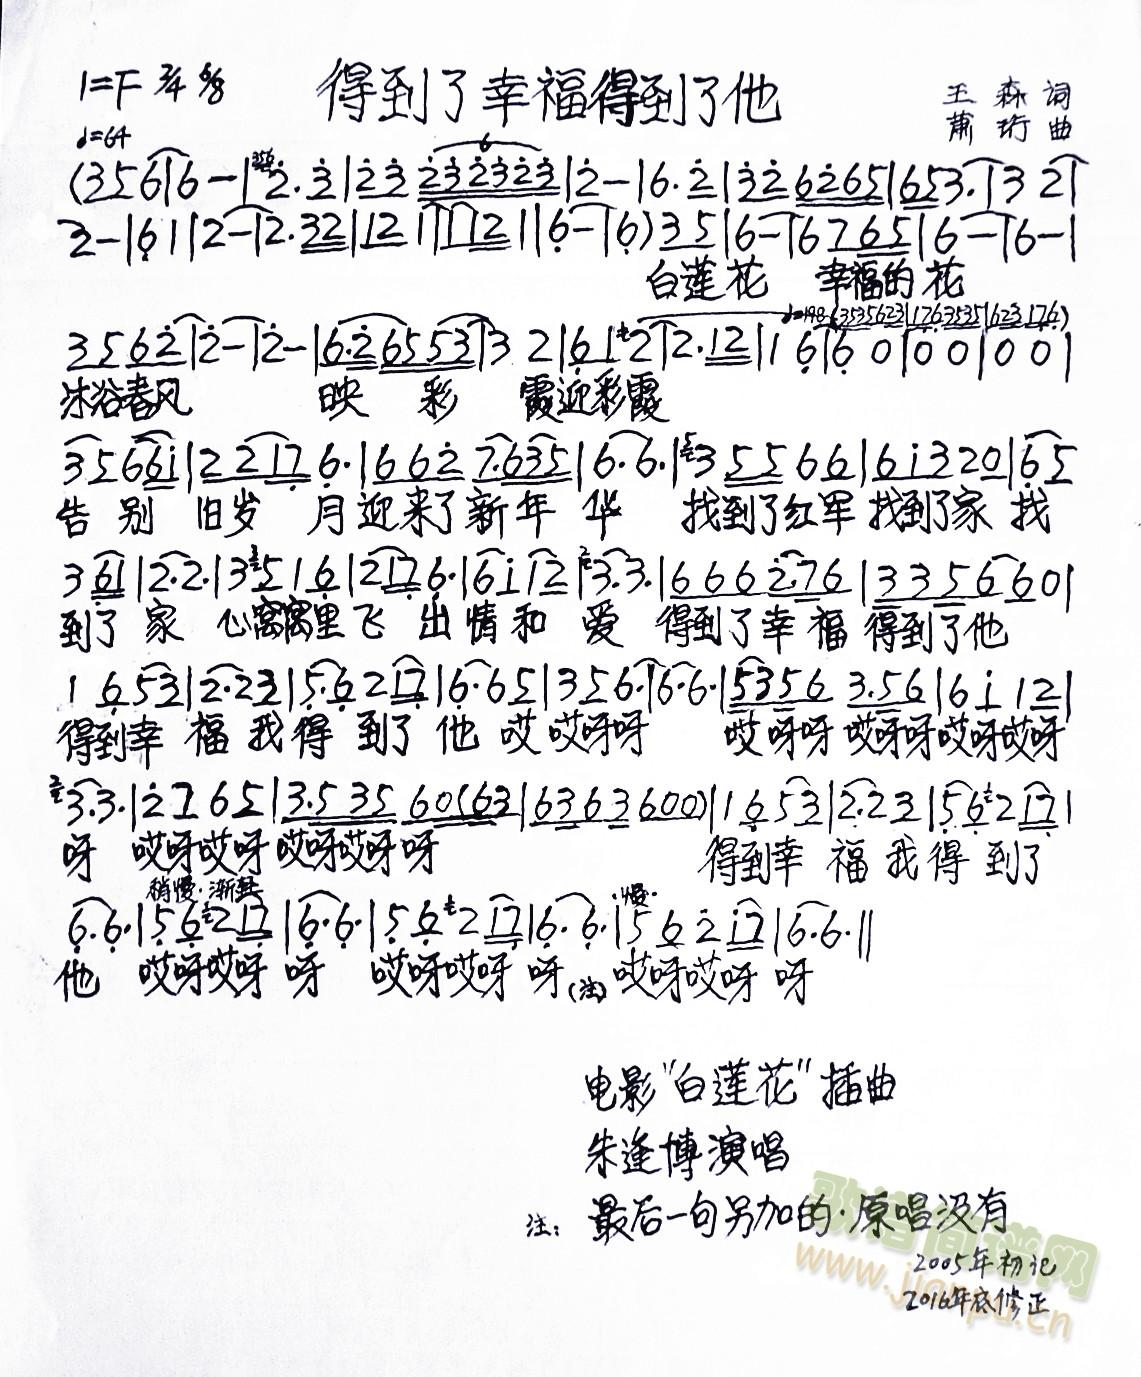 1=F 2/4 6/8 得到了幸福得到了他
王森词
萧珩曲
♩=64
(3 5 6 | 6 - | 2· 3 | 2 3 2 3 2 3 2 3 | 2 - | 6· 2 | 3 2 6 2 6 5 | 6 5 3· | 3 2 |
2 - | 6 1 | 2 - | 2· 3 2 | 1 2 1 | 1 1 2 1 | 6 - | 6) 3 5 | 6 - | 6 7 6 5 | 6 - | 6 - |
白莲花 幸福的花
♩=198 (3 5 3 5 6 2 3 | 1 7 6 3 5 3 5 | 6 2 3 1 7 6)
3 5 6 2 | 2 - | 2 - | 6· 2 6 5 5 3 | 3 2 | 6 1 2 | 2· 1 2 | 1 6 | 6 0 | 0 0 | 0 0 |
沐浴春风 映彩霞迎彩霞
3 5 6 6 1 | 2 2 1 7 6· | 6 6 2 7· 6 3 5 | 6· 6· | 3 5 5 6 6 | 6 1 3 2 0 | 6 5
告别旧岁月迎来了新年华 找到了红军找到了家找
3 6 1 | 2· 2· | 3 5 1 6 | 2 1 7 6· | 6 1 1 2 | 3· 3· | 6 6 6 2· 7 6 | 3 3 5 6 6 0 |
到了家 心窝窝里飞出情和爱 得到了幸福得到了他
1 6 5 3 | 2· 2 3 | 5· 6 2 1 7 | 6· 6 5 | 3 5 6· | 6· 6· | 5 3 5 6 3· 5 6 | 6 1 1 2 |
得到幸福我得到了他哎哎呀呀 哎呀呀哎呀呀哎呀哎呀
3· 3· | 2 7 6 5 | 3· 5 3 5 6 0 (6 3 | 6 3 6 3 6 0 0) | 1 6 5 3 | 2· 2 3 | 5 6 2 1 7 |
呀 哎呀哎呀哎呀哎呀呀 得到幸福我得到了
稍慢·渐 慢·
6· 6· | 5 6 2 1 7 | 6· 6· | 5 6 2 1 7 | 6· 6· | 5 6 2 1 7 | 6· 6· ‖
他 哎呀哎呀呀 哎呀哎呀呀(注)哎呀哎呀呀
电影"白莲花"插曲
朱逢博演唱
注: 最后一句另加的·原唱没有
2005年初记
2016年底修正
歌谱简谱网
www.jianpu.cn